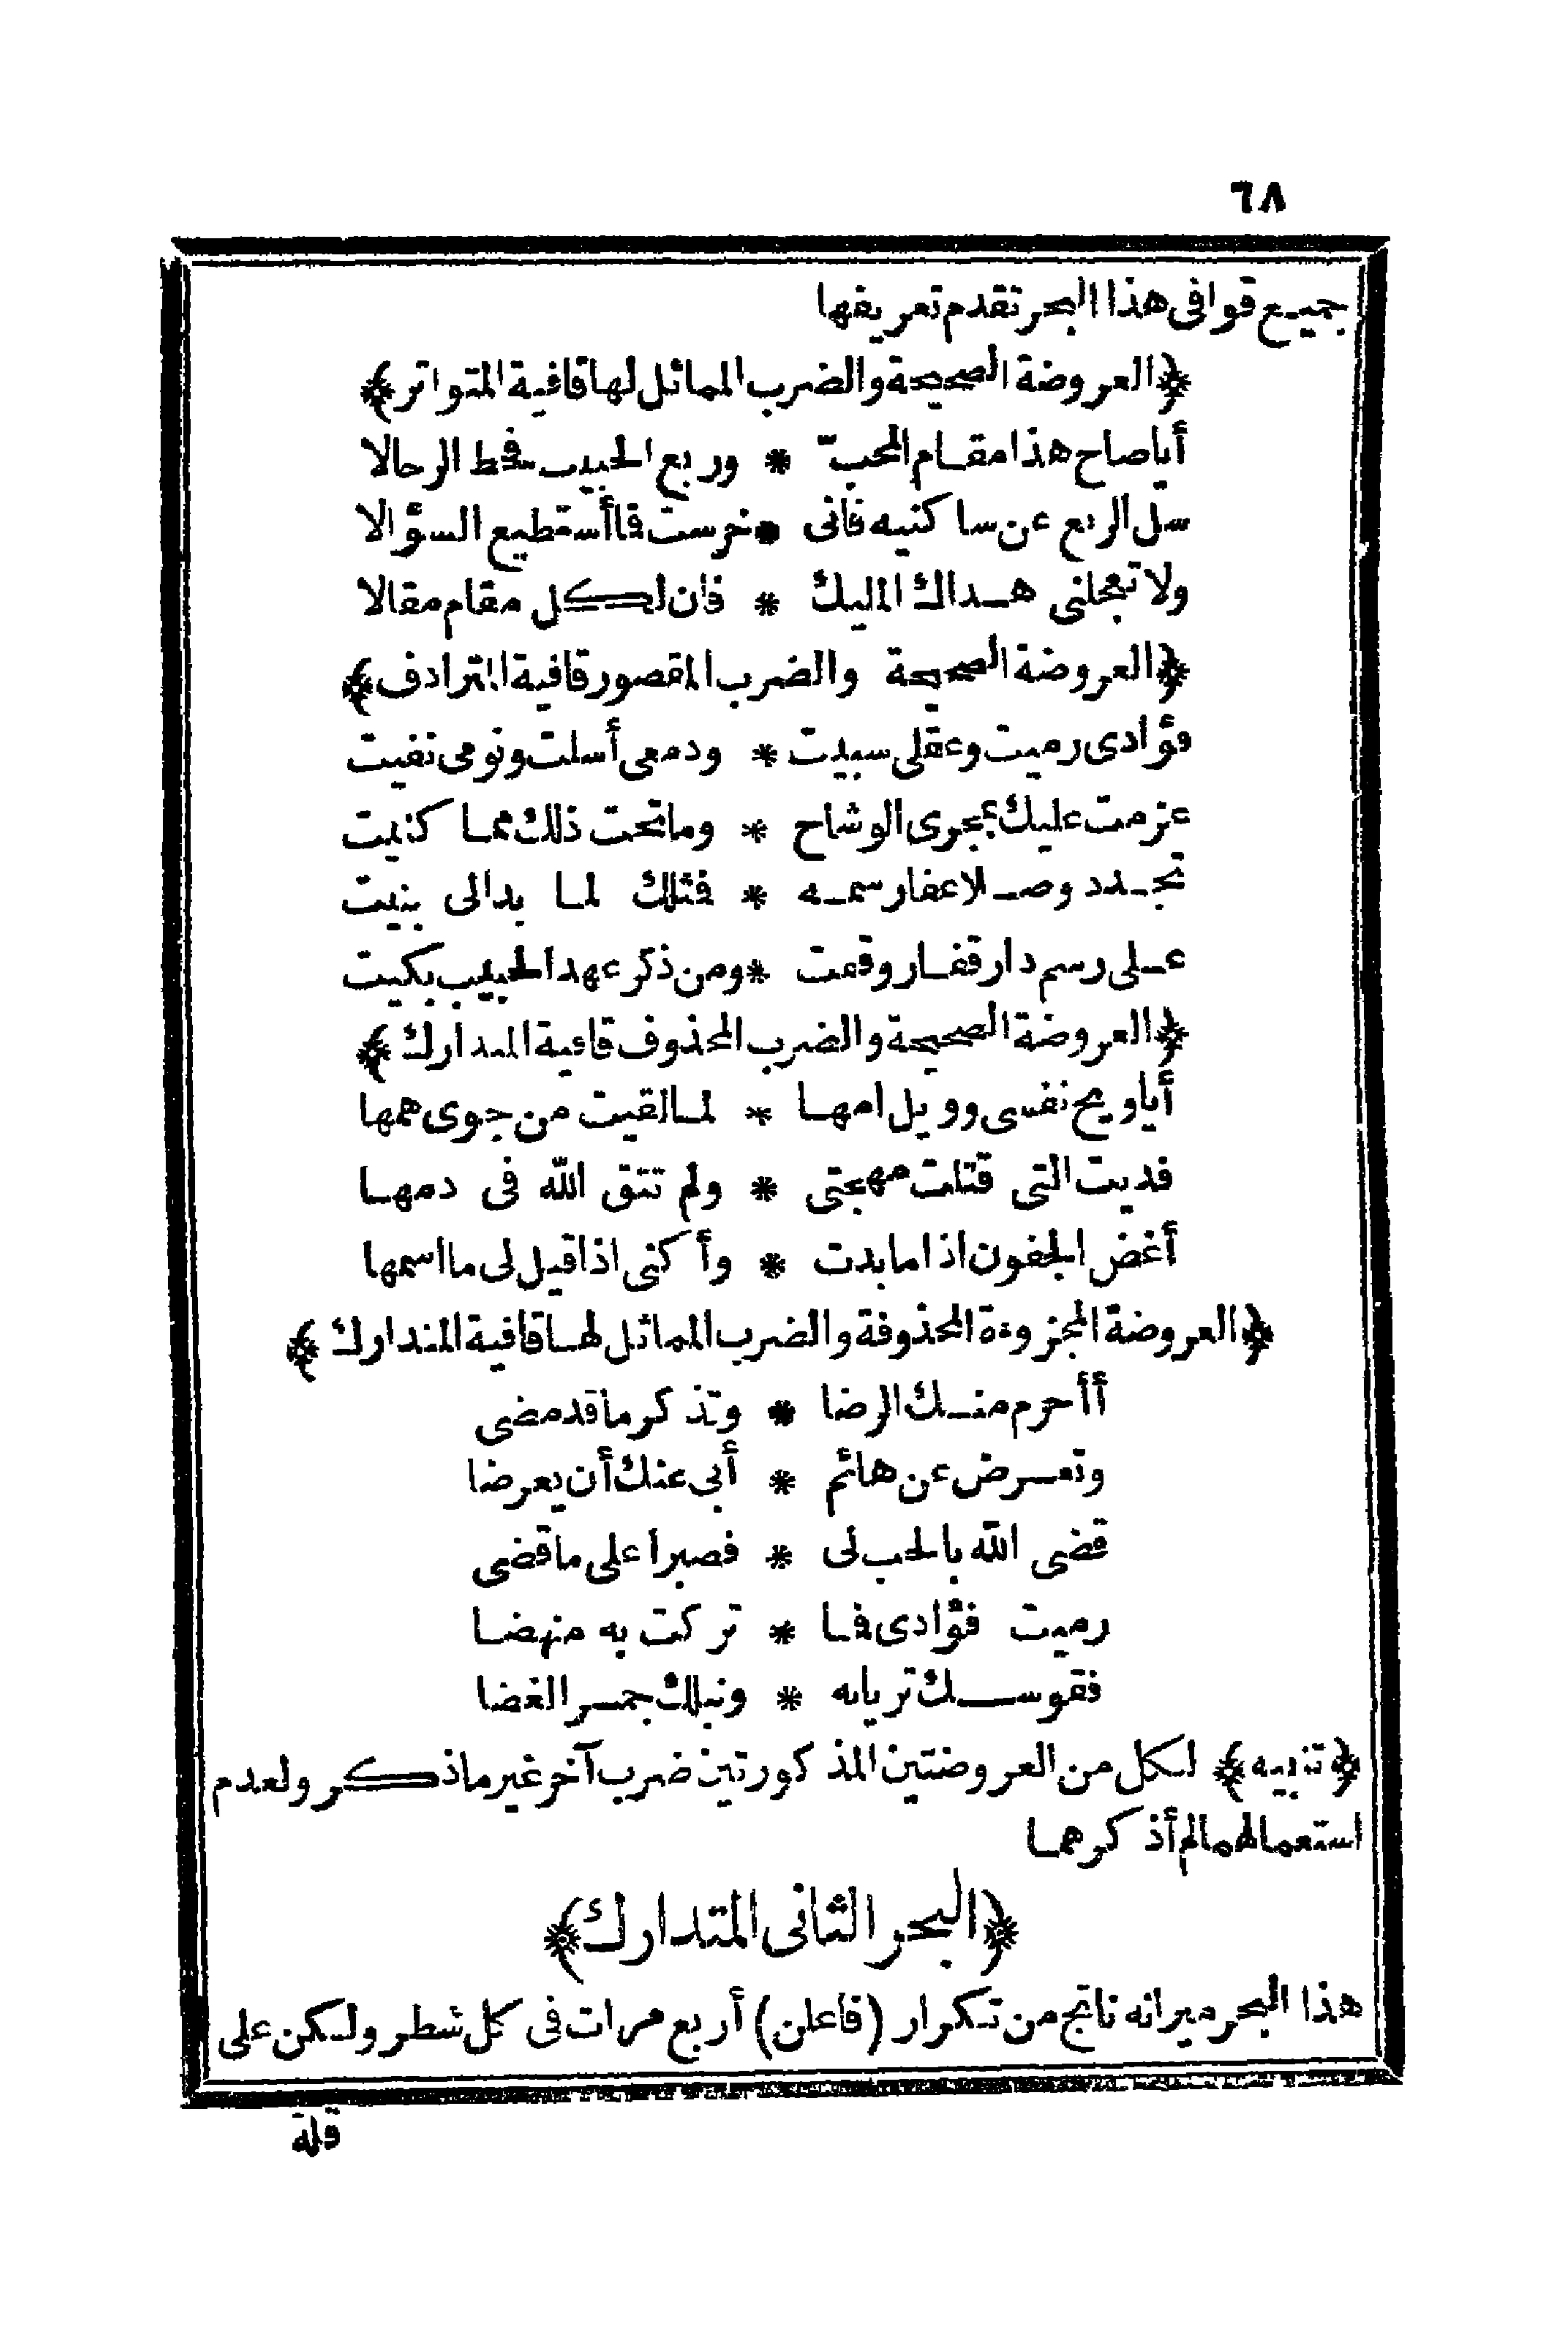 ٦٨
جميع قوافى هذا البحر تقدم تعريفها
﴿العروضة الصحيحة والضرب المماثل لها قافية المتواتر﴾
أيا صاح هذا مقام المحبّ * وربع الحبيب فحط الرحالا
سل الربع عن ساكنيه فانى * خرست فما أستطيع السؤالا
ولا تعجلنى هداك المليك * فان لكل مقام مقالا
﴿العروضة الصحيحة والضرب المقصور قافية المترادف﴾
فؤادى رميت وعقلى سبيت * ودمعى أسلت ونومى نفيت
عزمت عليك بمجرى الوشاح * وما تحت ذلك مما كنيت
تجدد وصلا عفا رسمه * فتلك لما بدالى بنيت
على رسم دار قفار وقفت * ومن ذكر عهد الحبيب بكيت
﴿العروضة الصحيحة والضرب المحذوف قافية المتدارك﴾
أيا ويح نفسى وويل امها * لما لقيت من جوى همها
فديت التى قتلت مهجتى * ولم تتق الله فى دمها
أغض الجفون اذا ما بدت * وأكنى اذا قيل لى ما اسمها
﴿العروضة المجزوءة المحذوفة والضرب المماثل لها قافية المتدارك﴾
أأحرم منك الرضا * وتذكر ما قد مضى
وتعرض عن هائم * أبى عنك أن يعرضا
قضى الله بالحب لى * فصبرا على ما قضى
رميت فؤادى فما * تركت به منهضا
فقوسك شريانه * ونبلك جمر الغضا
﴿تنبيه﴾ لكل من العروضتين المذكورتين ضرب آخر غير ما ذكر ولعدم
استعمالهما لم أذكرهما
﴿البحر الثانى المتدارك﴾
هذا البحر ميزانه ناتج من تكرار (فاعلن) أربع مرات فى كل شطر ولكن على
قلة